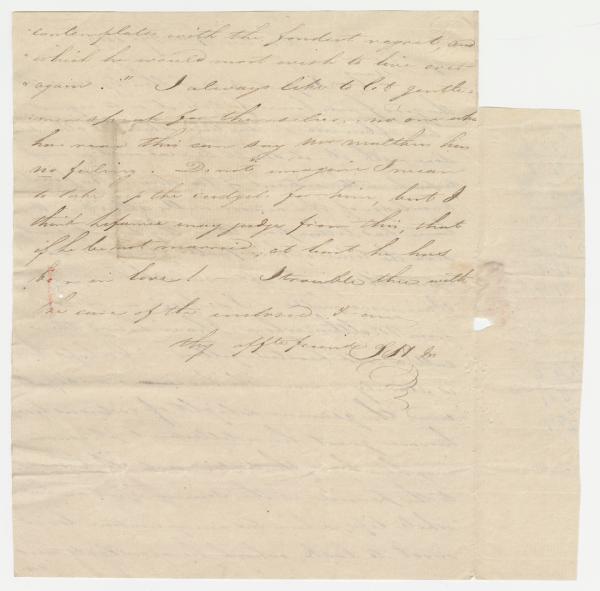 contemplates with the fondest regret, and
which he would most wish to live over
again." I always like to let gentle-
men speak for themselves, no one who
has read this can say Mr malthus has
no feeling. Do not imagine I mean
to take up the cudgel for him, but I
think we may judge from this, that
if he be not married, at least he has
been in love! I trouble thee with
the care of the enclosed & am
thy affte friend J H Jr